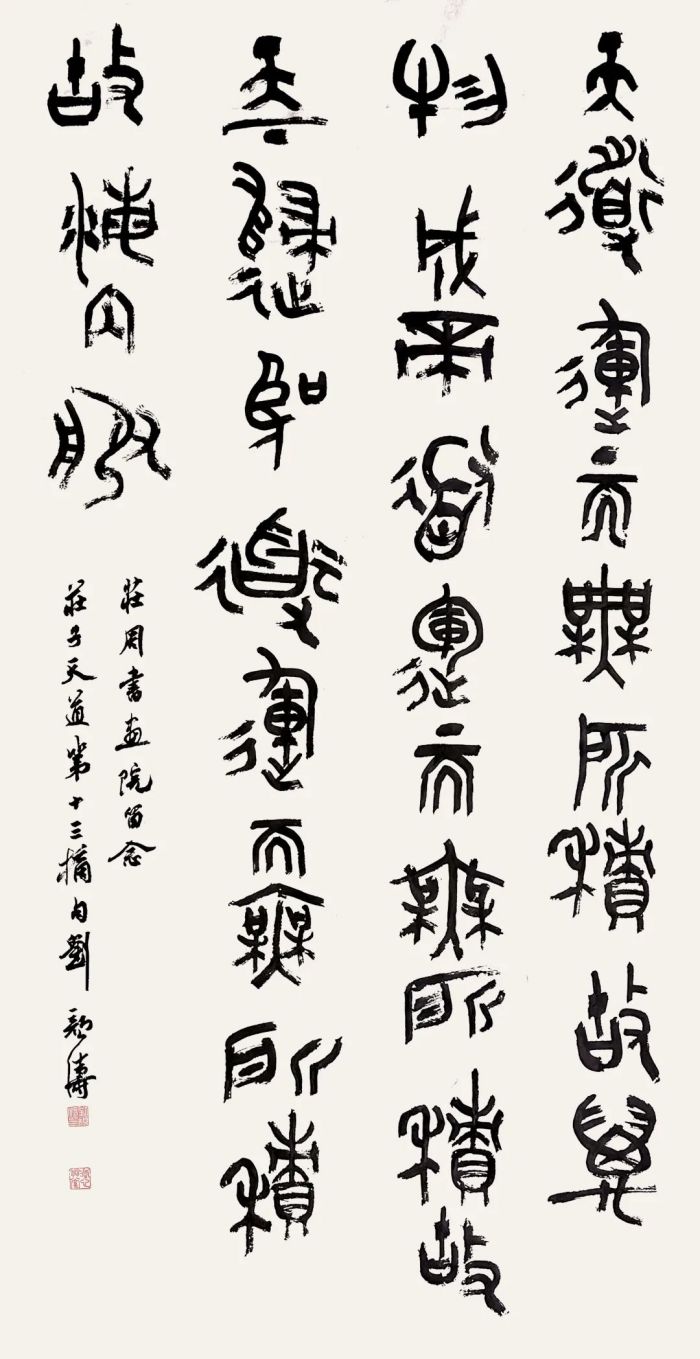 天道運而無所積故萬
物成帝道運而無所積故
天下歸聖道運而無所積
故海內服
莊周書畫院留念
莊子天道第十三摘句劉顏濤